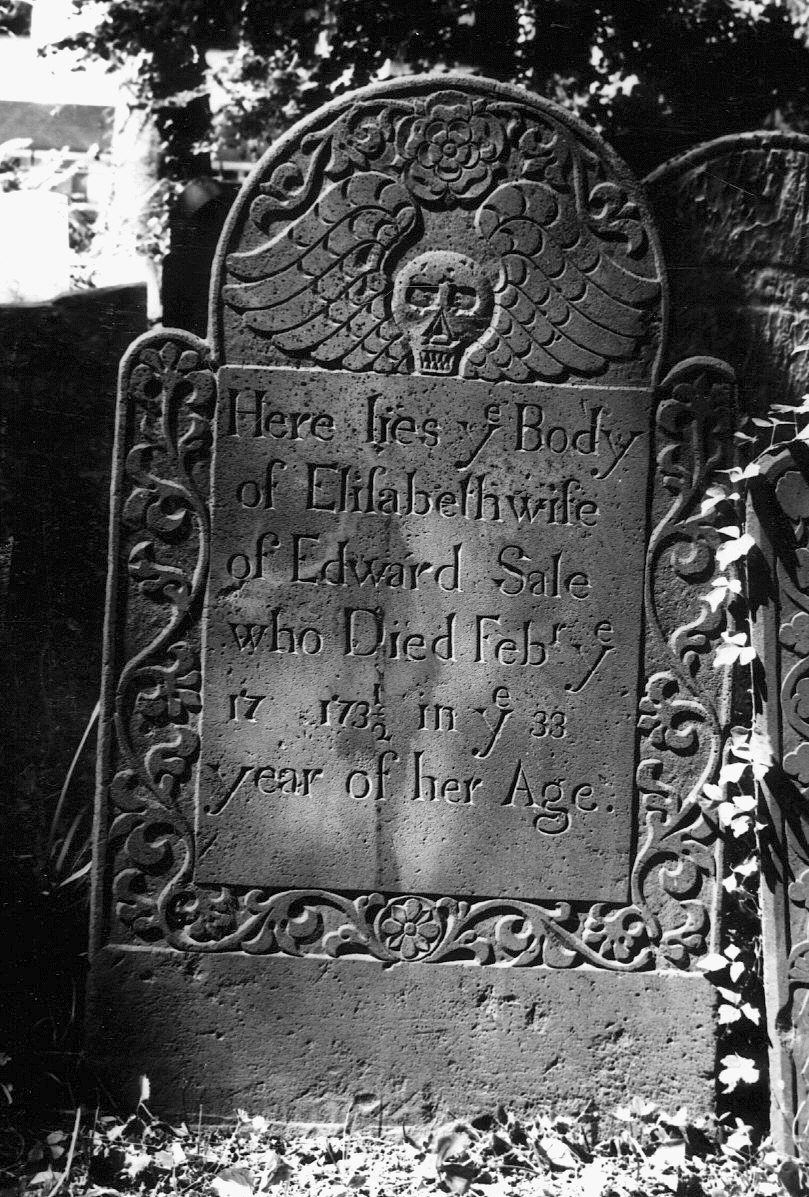 Here lies yᵉ Body
of Eliſabeth wife
of Edward Sale
who Died Febʳ. yᵉ
17 173½ in yᵉ 33
year of her Age.